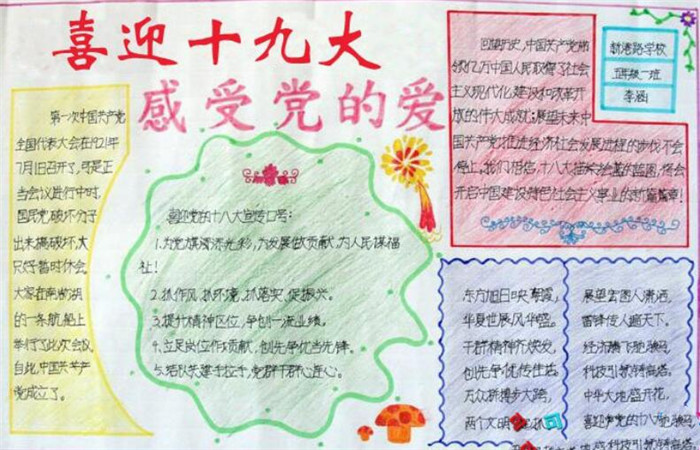 喜迎十九大
感受党的爱
第一次中国共产党
全国代表大会在1921年
7月1日召开了,可是正
当会议进行中时,
国民党破坏分子
出来搞破坏,大
只好暂时休会
大家在南湖湖
的一条航船上
举行了此次会议
自此,中国共产
党成立了。
喜迎党的十八大宣传口号:
1.为党旗添光彩,为发展做贡献,为人民谋福
祉!
2.抓作风,抓环境,抓落实,促振兴。
3.提升精神区位,争创一流业绩。
4.立足岗位作贡献,创先争优当先锋。
5.结队共建手拉手,党群干群心连心。
回望历史,中国共产党带
领亿万中国人民取得了社会
主义现代化建设和改革开
放的伟大成就;展望未来中
国共产党推进经济社会发展进程的步伐不会
停止,我们相信,十八大描绘的蓝图,将会
开启中国建设特色社会主义事业的新篇章!
新港路学校
四年级一班
李涵
东方旭日映朝霞,
华夏世展风华盛。
干群精神齐焕发,
创先争优传佳话
万众新擞步大跨,
两个文明
展望宏图人潇洒,
雷锋传人遍天下。
经济腾飞驰骏马,
科技引领铸高塔。
中华大地盛开花,
喜迎党的十八大